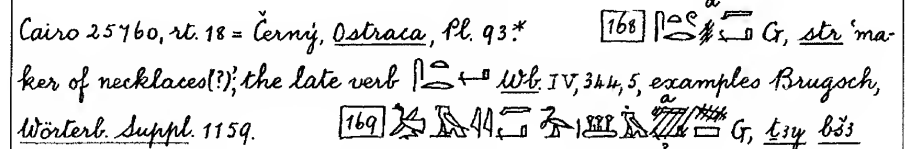 Cairo 25760, rt. 18 = Černý, Ostraca, Pl. 93.* 168 G, str 'ma-
ker of necklaces(?)'; the late verb Wb. IV, 344, 5, examples Brugsch,
Wörterb. Suppl. 1159. 169 G, ṯꜣy bšꜣ